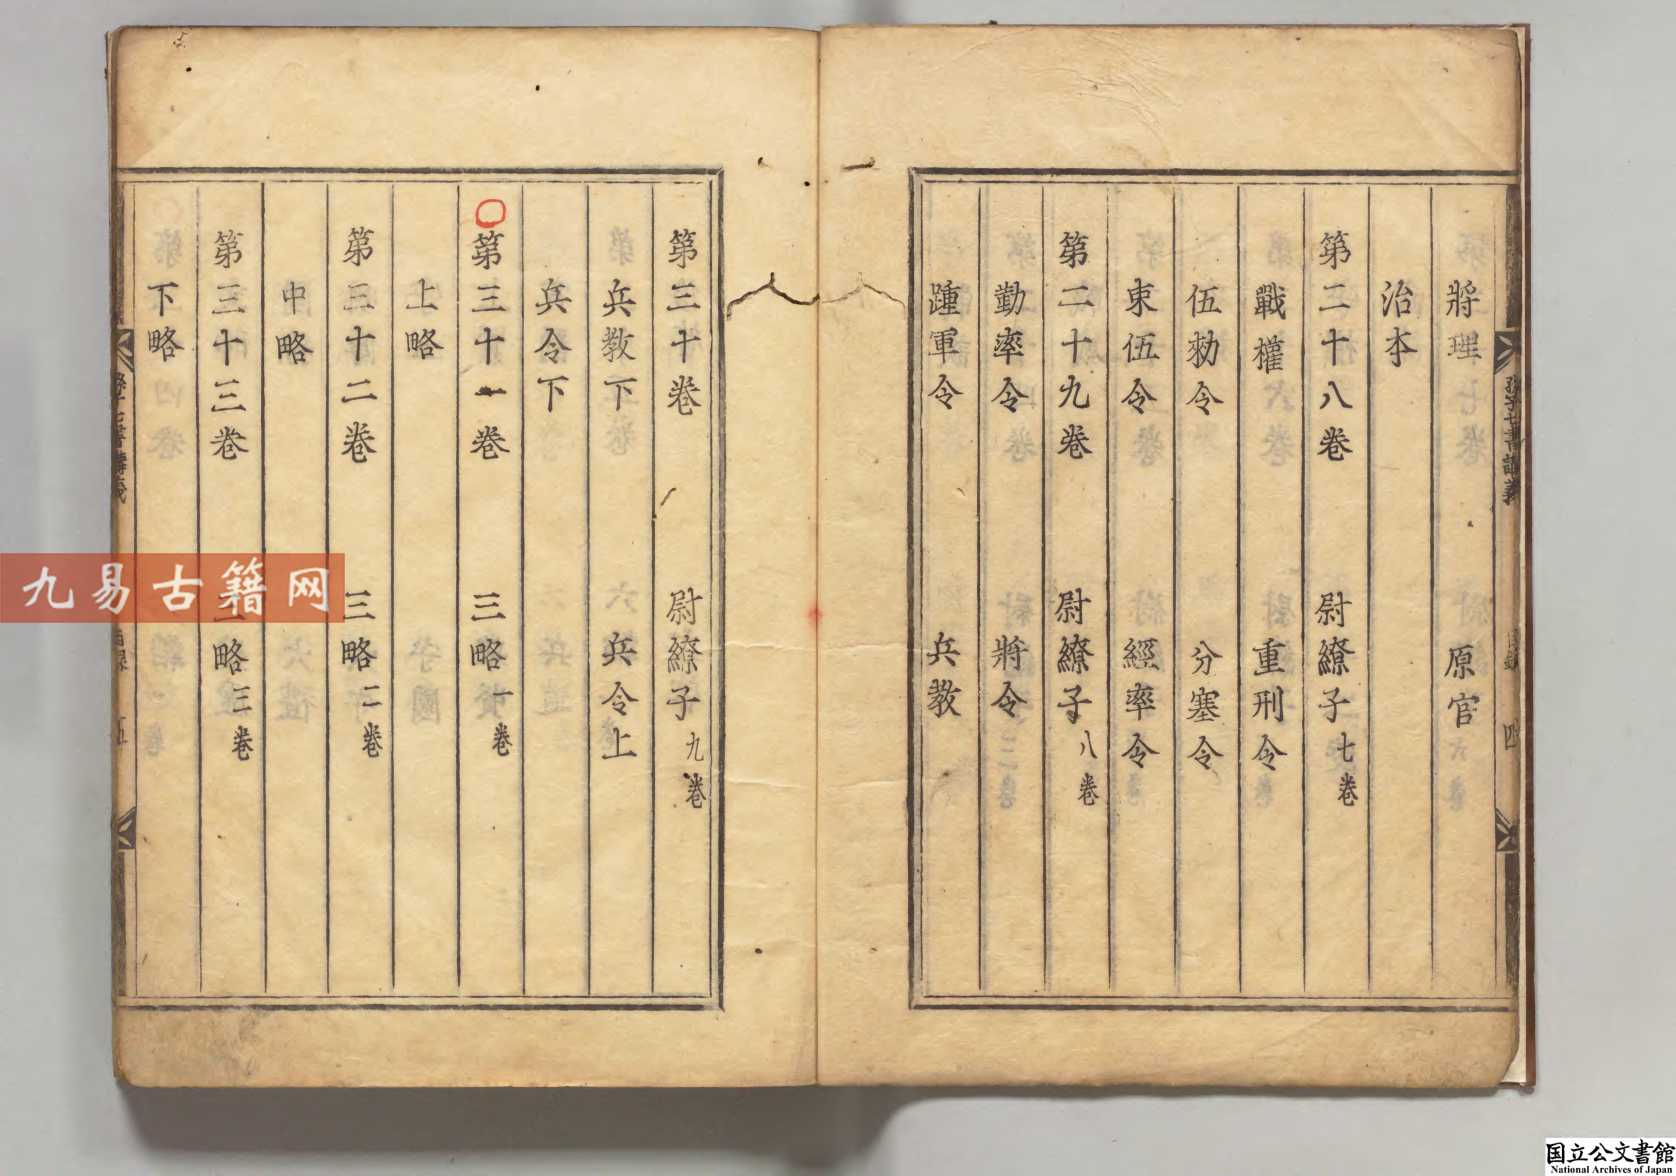 將理　原官
治本
第二十八卷　尉繚子七卷
戰權　重刑令
伍勑令　分塞令
束伍令　經率令
第二十九卷　尉繚子八卷
勤率令　將令
踵軍令　兵教
第三十卷　尉繚子九卷
兵教下　兵令上
兵令下
第三十一卷　三略一卷
上略
第三十二卷　三略二卷
中略
第三十三卷　三略三卷
下略
四
五
九易古籍网
国立公文書館
National Archives of Japan